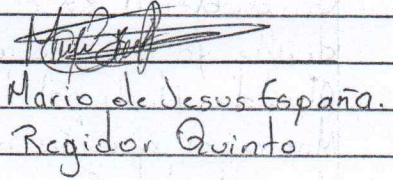 Mario de Jesus España.
Regidor Quinto